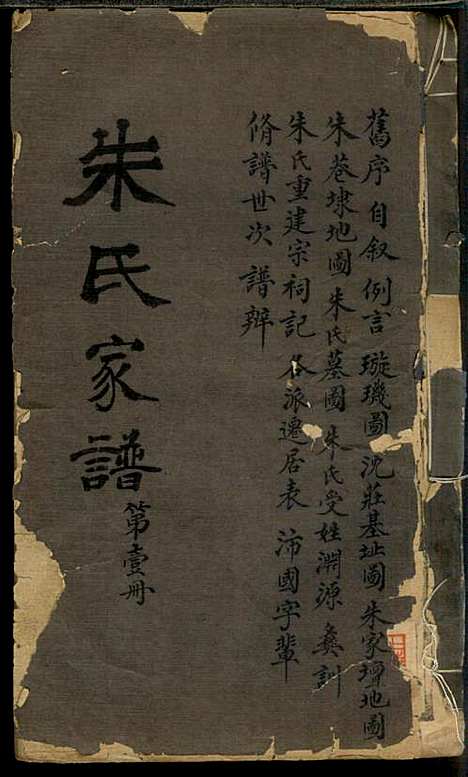 舊序 自叙 例言 璇璣圖 沈莊基址圖 朱家壇地圖
朱巷埭地圖 朱氏墓圖 朱氏受姓淵源 彝訓
朱氏重建宗祠記 各派遷居表 沛國字輩
脩譜世次 譜辨
朱氏家譜
第壹册